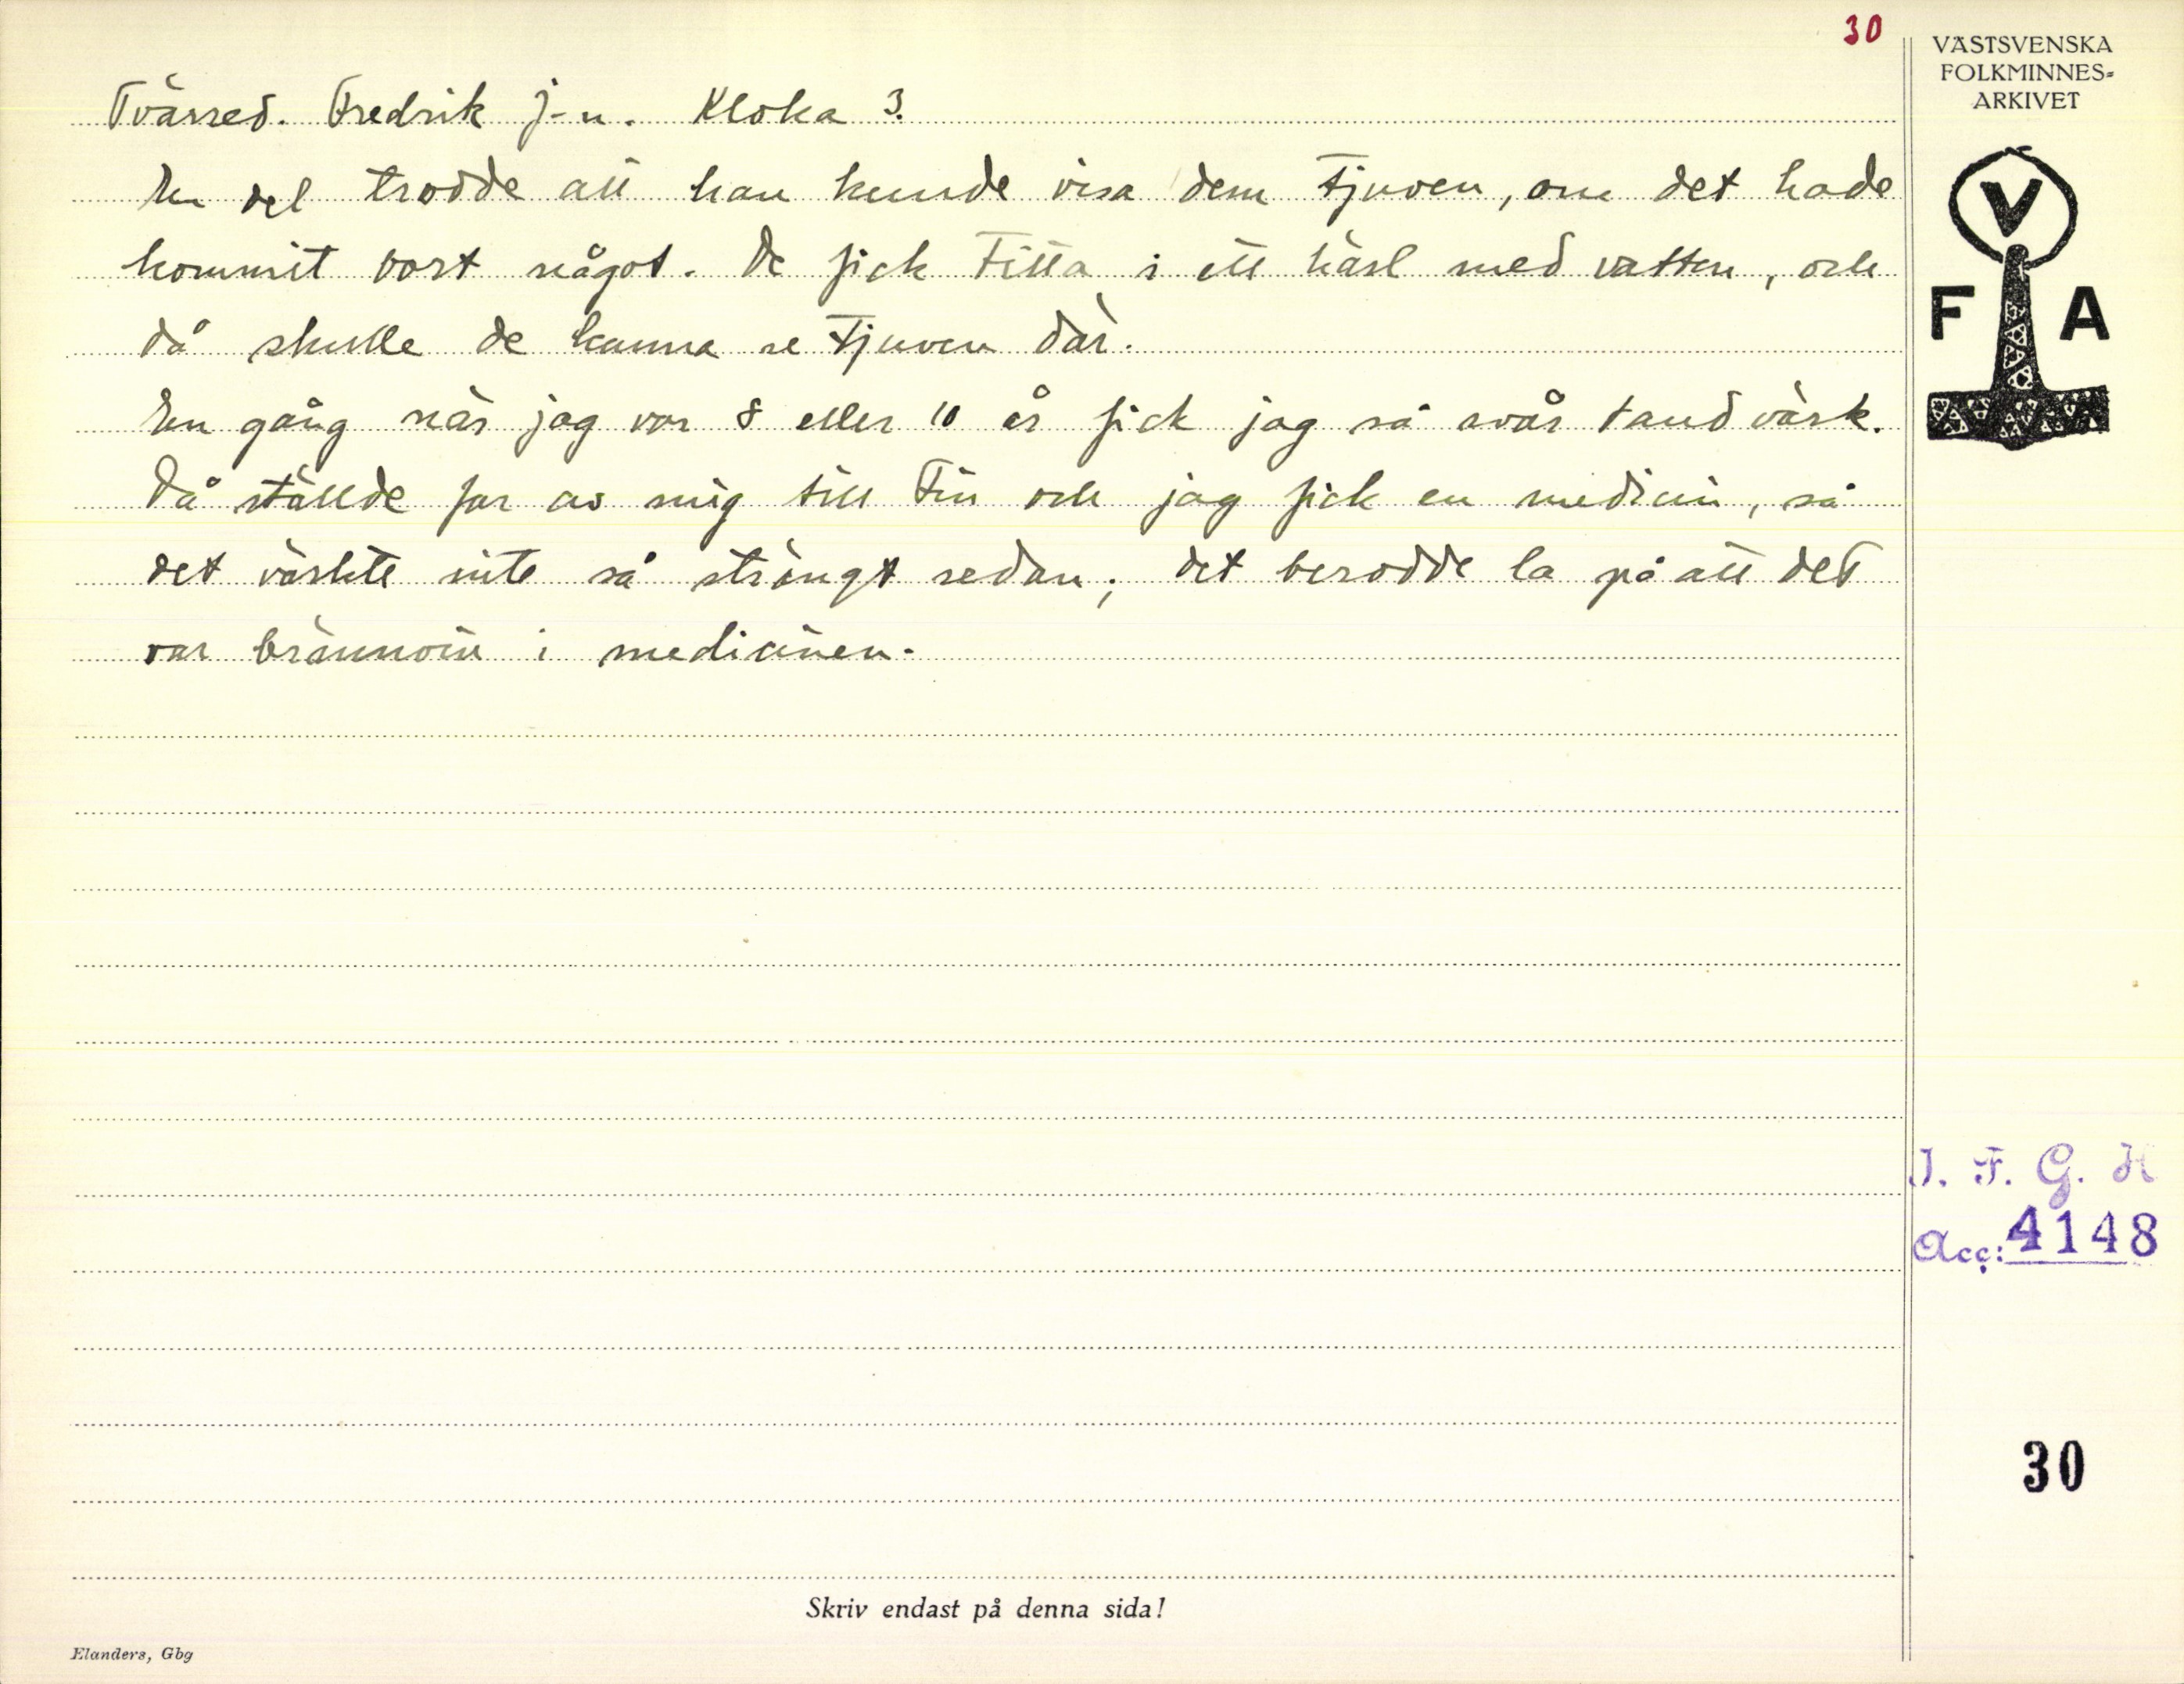 30
Tvärred. Fredrik J-n. Kloka 3.
En del trodde att han kunde visa dem tjuven, om det hade
kommit bort något. De fick titta i ett kärl med vatten, och
då skulle de kunna se tjuven där.
En gång när jag var 8 eller 10 år fick jag så svår tandvärk.
Då ställde far av mig till Fin och jag fick en medicin, så
det värkte inte så strängt sedan; det berodde la på att det
var brännvin i medicinen.
VÄSTSVENSKA
FOLKMINNES-
ARKIVET
V
F A
I. F. G. H
Acc: 4148
30
Skriv endast på denna sida!
Elanders, Gbg